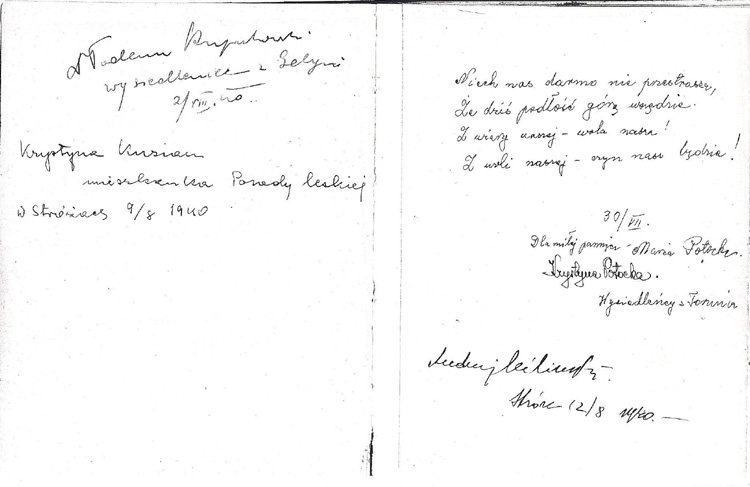 Tadeusz
wysiedleniec z Gdyni
2/VIII. 40.
Krystyna Kusiau
mieszkanka Porady leskiej
w Stróżach 9/8 1940
Niech nas darmo nie przestrasza,
Że dziś podłość górą wszędzie.
Z wiary naszej - wola nasza!
Z woli naszej - czyn nasz będzie!
30/VII.
Dla miłej pamięci Maria Potocka.
Krystyna Potocka.
Wysiedleńcy z Torunia
Stróże 12/8 1940. —